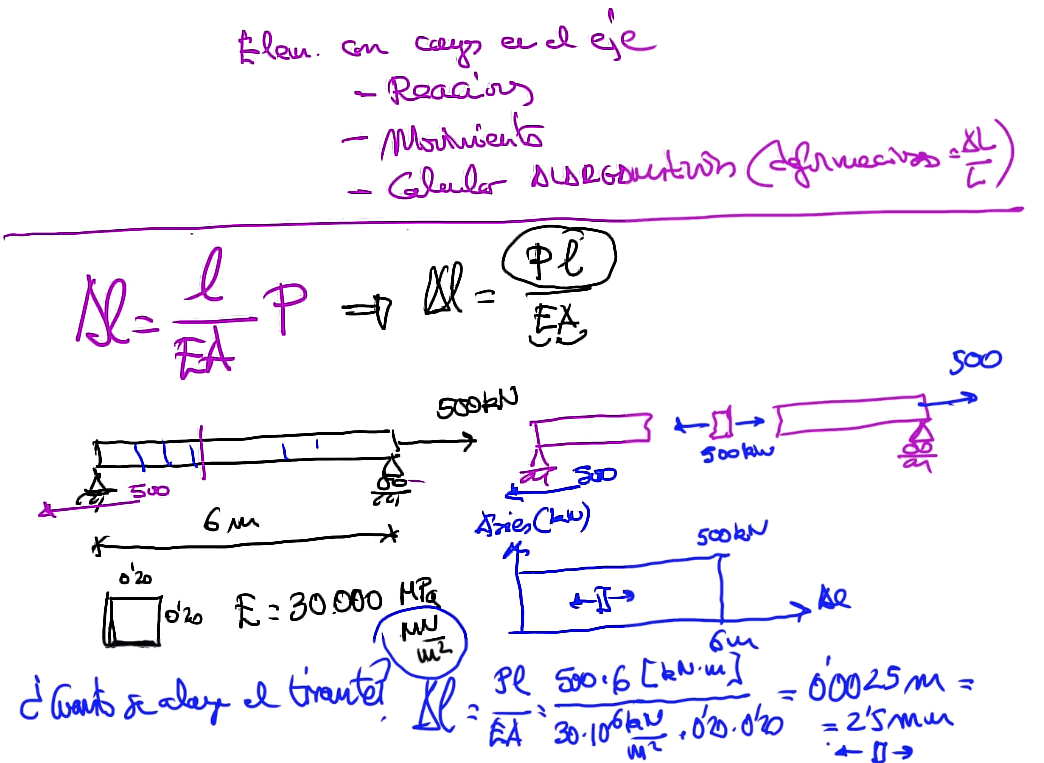 Elem. con cargas en el eje
- Reacciones
- Movimiento
- Calcular ALARGAMIENTOS (deformaciones = ΔL/L)
Δl = l/EA P ⇒ Δl = Pl/EA
500kN
500
500kN
500
500
6 m
Axiles (kN)
500kN
0'20
0'20
E = 30.000 MPa
MN/m²
6m
Δl
¿Cuanto se alarga el tirante?
Δl = Pl/EA = 500·6 [kN·m] / 30·10⁶ kN/m² · 0'20 · 0'20 = 0'0025 m =
= 2'5 mm